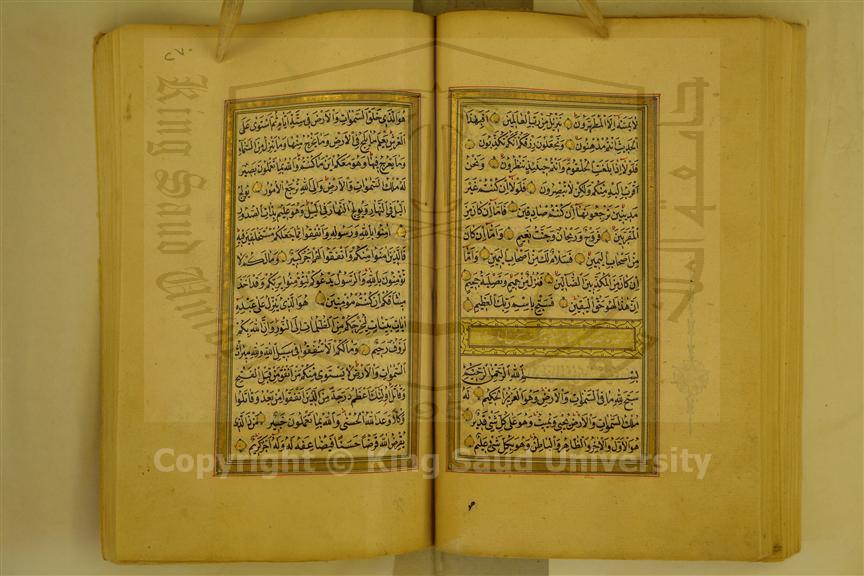 لا يمسه الا المطهرون تنزيل من رب العالمين افبهذا
الحديث انتم مدهنون وتجعلون رزقكم انكم تكذبون
فلولا اذا بلغت الحلقوم وانتم حينئذ تنظرون ونحن
اقرب اليه منكم ولكن لا تبصرون فلولا ان كنتم غير
مدينين ترجعونها ان كنتم صادقين فاما ان كان من
المقربين فروح وريحان وجنت نعيم واما ان كان
من اصحاب اليمين فسلام لك من اصحاب اليمين واما
ان كان من المكذبين الضالين فنزل من حميم وتصلية جحيم
ان هذا لهو حق اليقين فسبح باسم ربك العظيم
بسم الله الرحمن الرحيم
سبح لله ما في السموات والارض وهو العزيز الحكيم له
ملك السموات والارض يحيي ويميت وهو على كل شئ قدير
هو الاول والاخر والظاهر والباطن وهو بكل شئ عليم
٢٧٠
هو الذي خلق السموات والارض في ستة ايام ثم استوى على
العرش يعلم ما يلج في الارض وما يخرج منها وما ينزل من السماء
وما يعرج فيها وهو معكم اين ما كنتم والله بما تعملون بصير
له ملك السموات والارض والى الله ترجع الامور يولج
اليل في النهار ويولج النهار في اليل وهو عليم بذات الصدور
امنوا بالله ورسوله وانفقوا مما جعلكم مستخلفين فيه
فالذين امنوا منكم وانفقوا لهم اجر كبير وما لكم لا
تؤمنون بالله والرسول يدعوكم لتؤمنوا بربكم وقد اخذ
ميثاقكم ان كنتم مؤمنين هو الذي ينزل على عبده
ايات بينات ليخرجكم من الظلمات الى النور وان الله بكم
لرؤف رحيم وما لكم الا تنفقوا في سبيل الله ولله ميراث
السموات والارض لا يستوي منكم من انفق من قبل الفتح
وقاتل اولئك اعظم درجة من الذين انفقوا من بعد وقاتلوا
وكلا وعد الله الحسنى والله بما تعملون خبير من ذا الذي
يقرض الله قرضا حسنا فيضاعفه له وله اجر كريم
King Saud University
جامعة الملك سعود
1957
Copyright © King Saud University